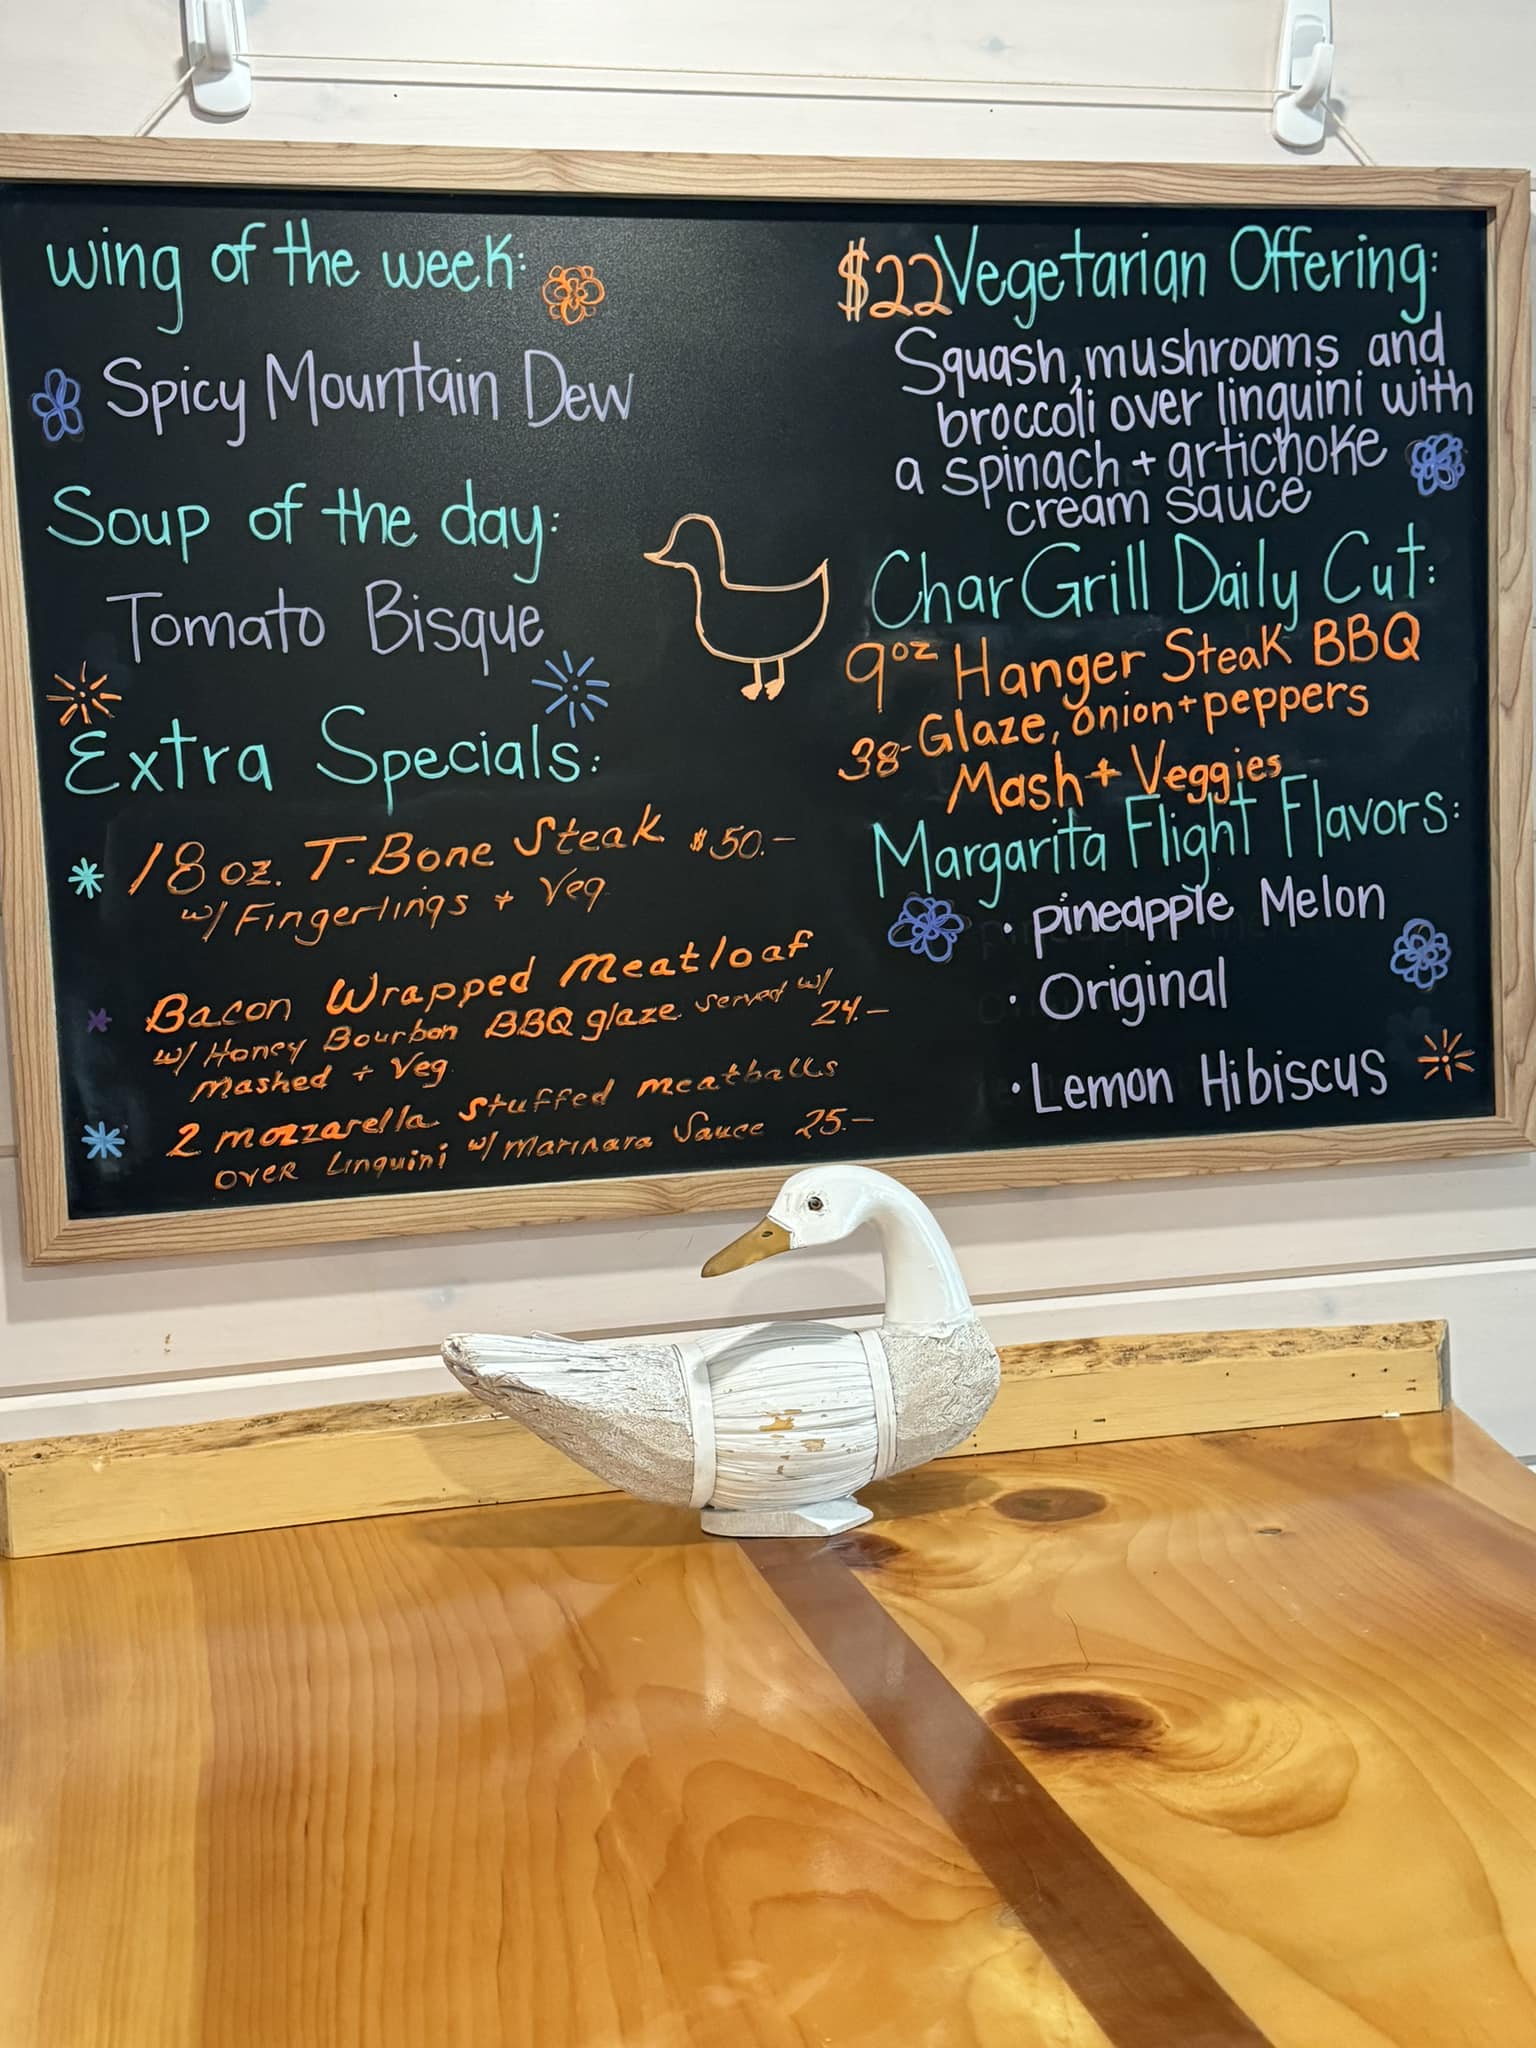 wing of the week:
Spicy Mountain Dew
Soup of the day:
Tomato Bisque
Extra Specials:
18 oz. T-Bone Steak $50.-
w/ Fingerlings + Veg
Bacon Wrapped Meatloaf
w/ Honey Bourbon BBQ glaze served w/
Mashed + Veg 24.-
2 mozzarella stuffed meatballs
over Linquini w/ Marinara Sauce 25.-
$22 Vegetarian Offering:
Squash, mushrooms and
broccoli over linguini with
a spinach + artichoke
cream sauce
Char Grill Daily Cut:
9oz Hanger Steak BBQ
38- Glaze, onion + peppers
Mash + Veggies
Margarita Flight Flavors:
· pineapple Melon
· Original
· Lemon Hibiscus